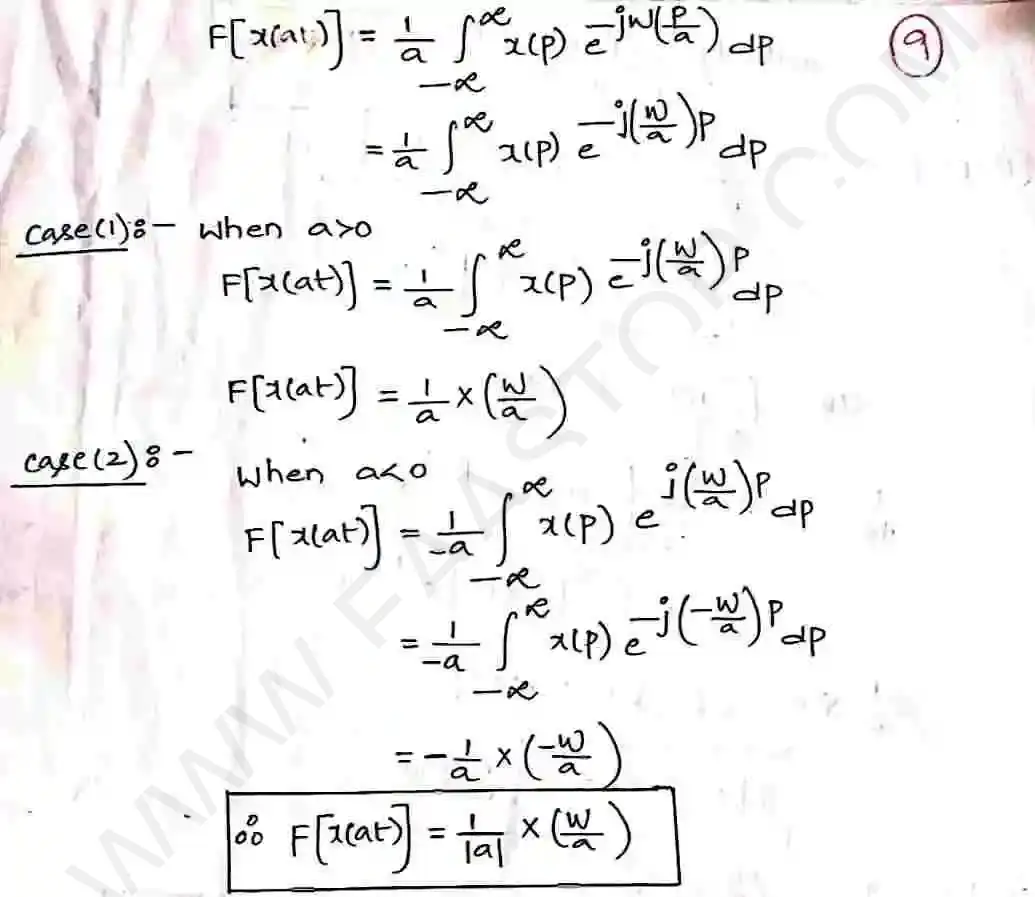 F[x(at)] = 1/a ∫_{-∞}^{∞} x(p) e^{-jw(p/a)} dp
9
= 1/a ∫_{-∞}^{∞} x(p) e^{-j(w/a)p} dp
case(1):- When a>0
F[x(at)] = 1/a ∫_{-∞}^{∞} x(p) e^{-j(w/a)p} dp
F[x(at)] = 1/a X(w/a)
case(2):- When a<0
F[x(at)] = 1/-a ∫_{-∞}^{∞} x(p) e^{j(w/a)p} dp
= 1/-a ∫_{-∞}^{∞} x(p) e^{-j(-w/a)p} dp
= -1/a X(-w/a)
∴ F[x(at)] = 1/|a| X(w/a)